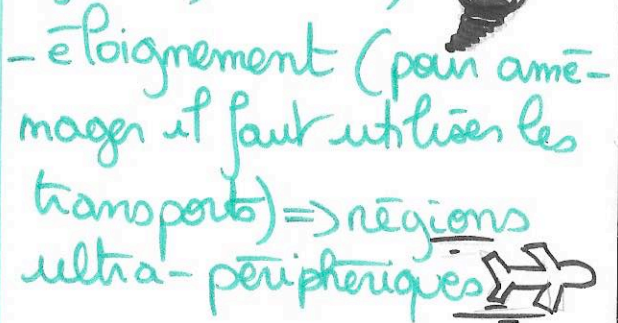 - éloignement (pour amé-
nager il faut utiliser les
transports) => régions
ultra-périphériques